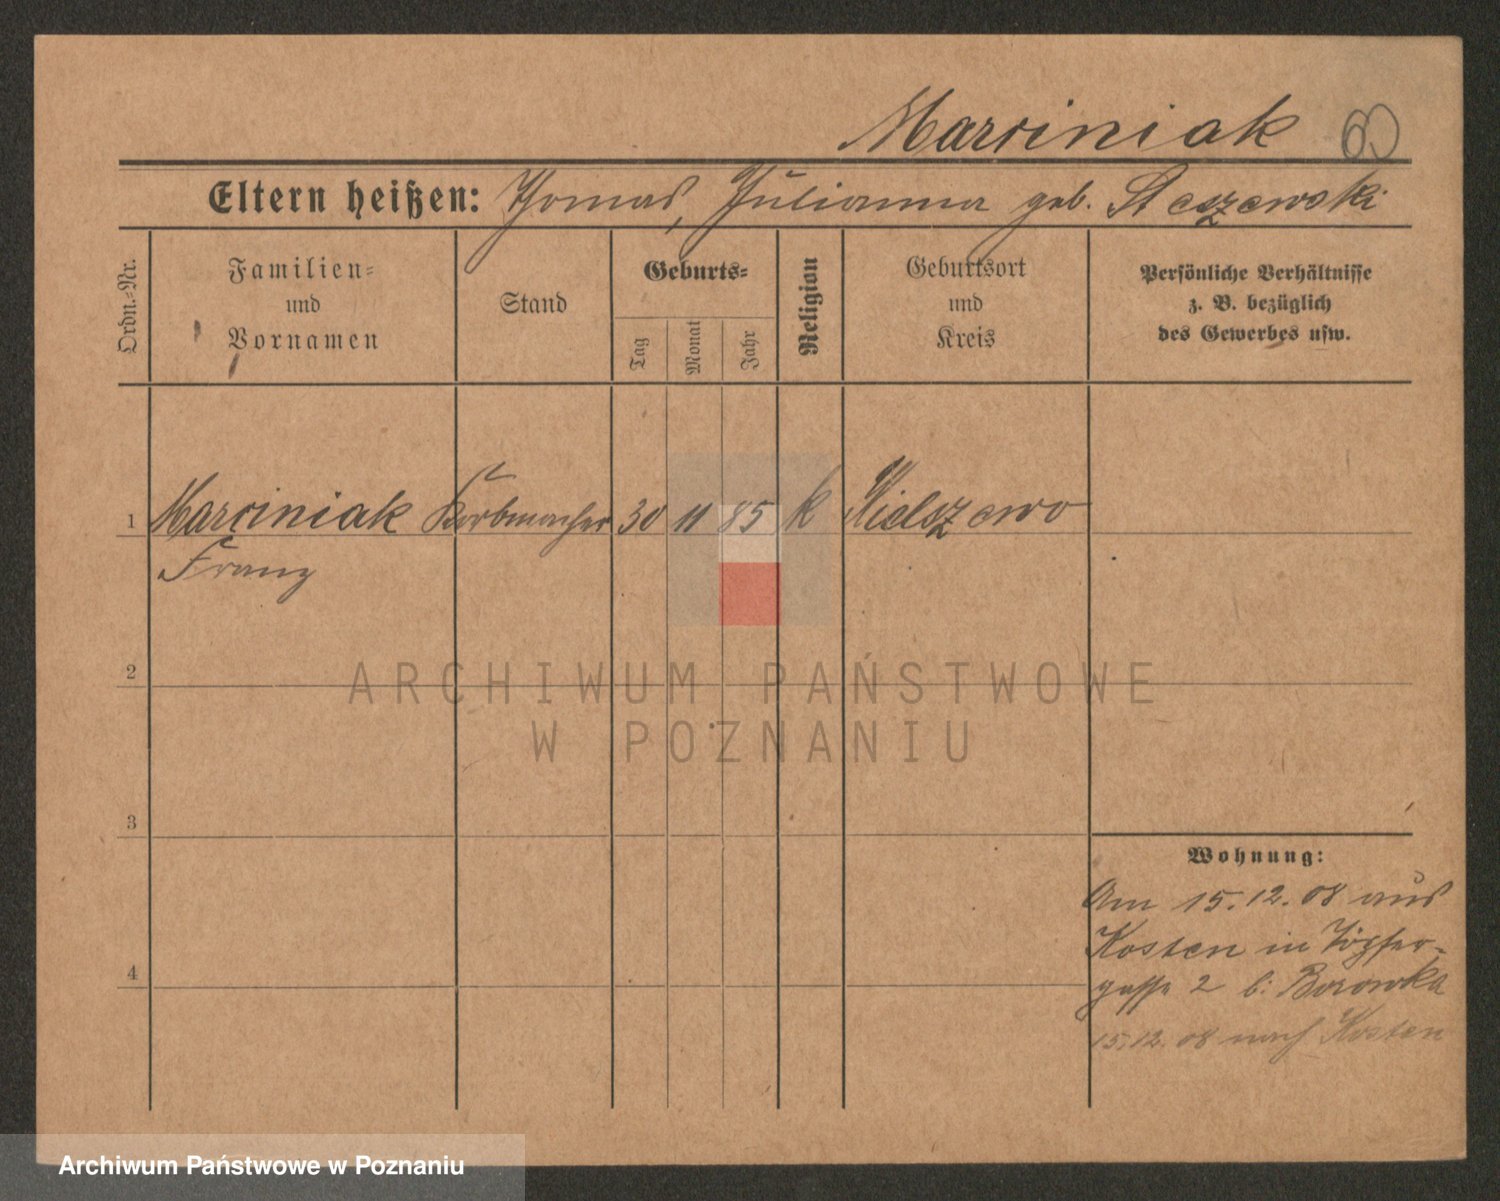 Marciniak 60
Eltern heißen: Thomas, Julianna geb. Steszewski
Ordn.-Nr.
Familien-
und
Vornamen
Stand
Geburts-
Tag
Monat
Jahr
Religion
Geburtsort
und
Kreis
Persönliche Verhältnisse
z. B. bezüglich
des Gewerbes usw.
1 Marciniak Korbmacher 30 11 85 k Kielszewo
Franz
2
3
4
Wohnung:
Am 15.12.08 aus
Kosten in Töpfer-
gasse 2 b: Borowka
15.12.08 nach Kosten
ARCHIWUM PAŃSTWOWE
W POZNANIU
Archiwum Państwowe w Poznaniu